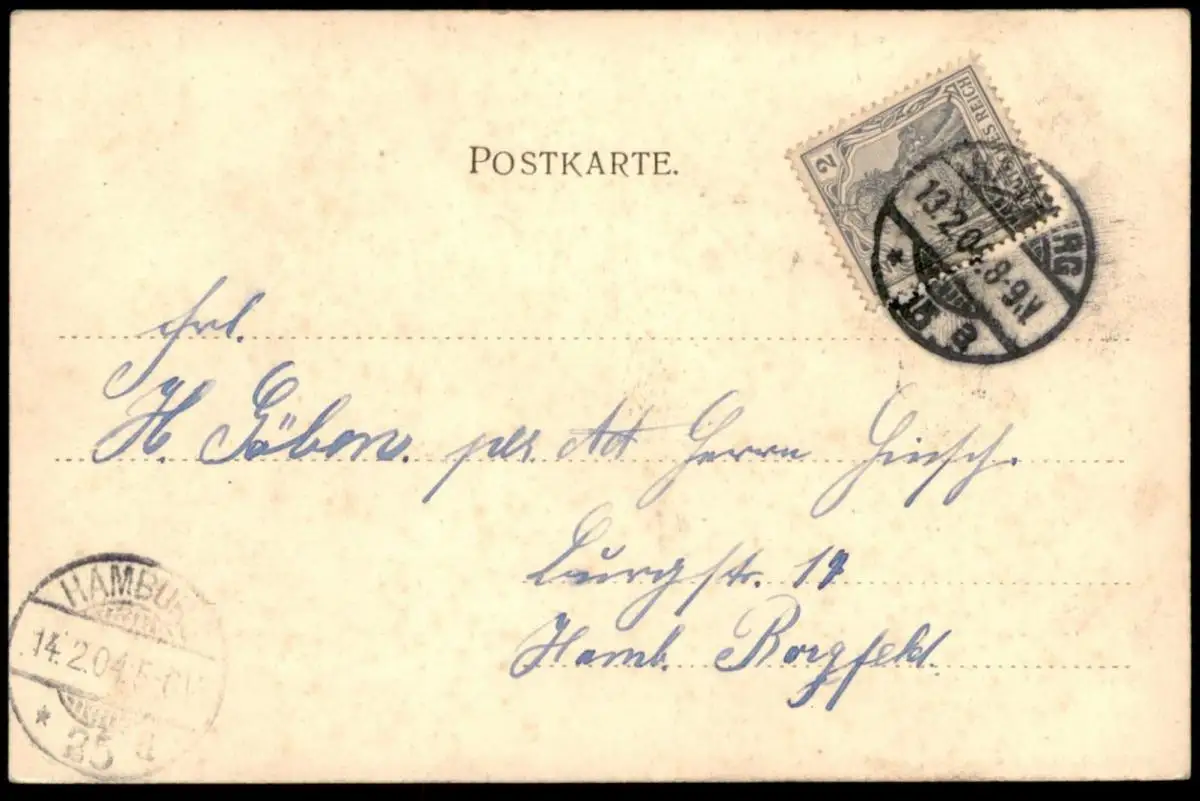 POSTKARTE.
2
DEUTSCHES REICH
HAMBURG
13.2.04. 8-9N
* 15 a
Frl.
H. Göben. per Adr Herrn Hinsch.
Burgstr. 19
Hamb. Borgfeld.
HAMBURG
14.2.04. 5-6V
* 25 a